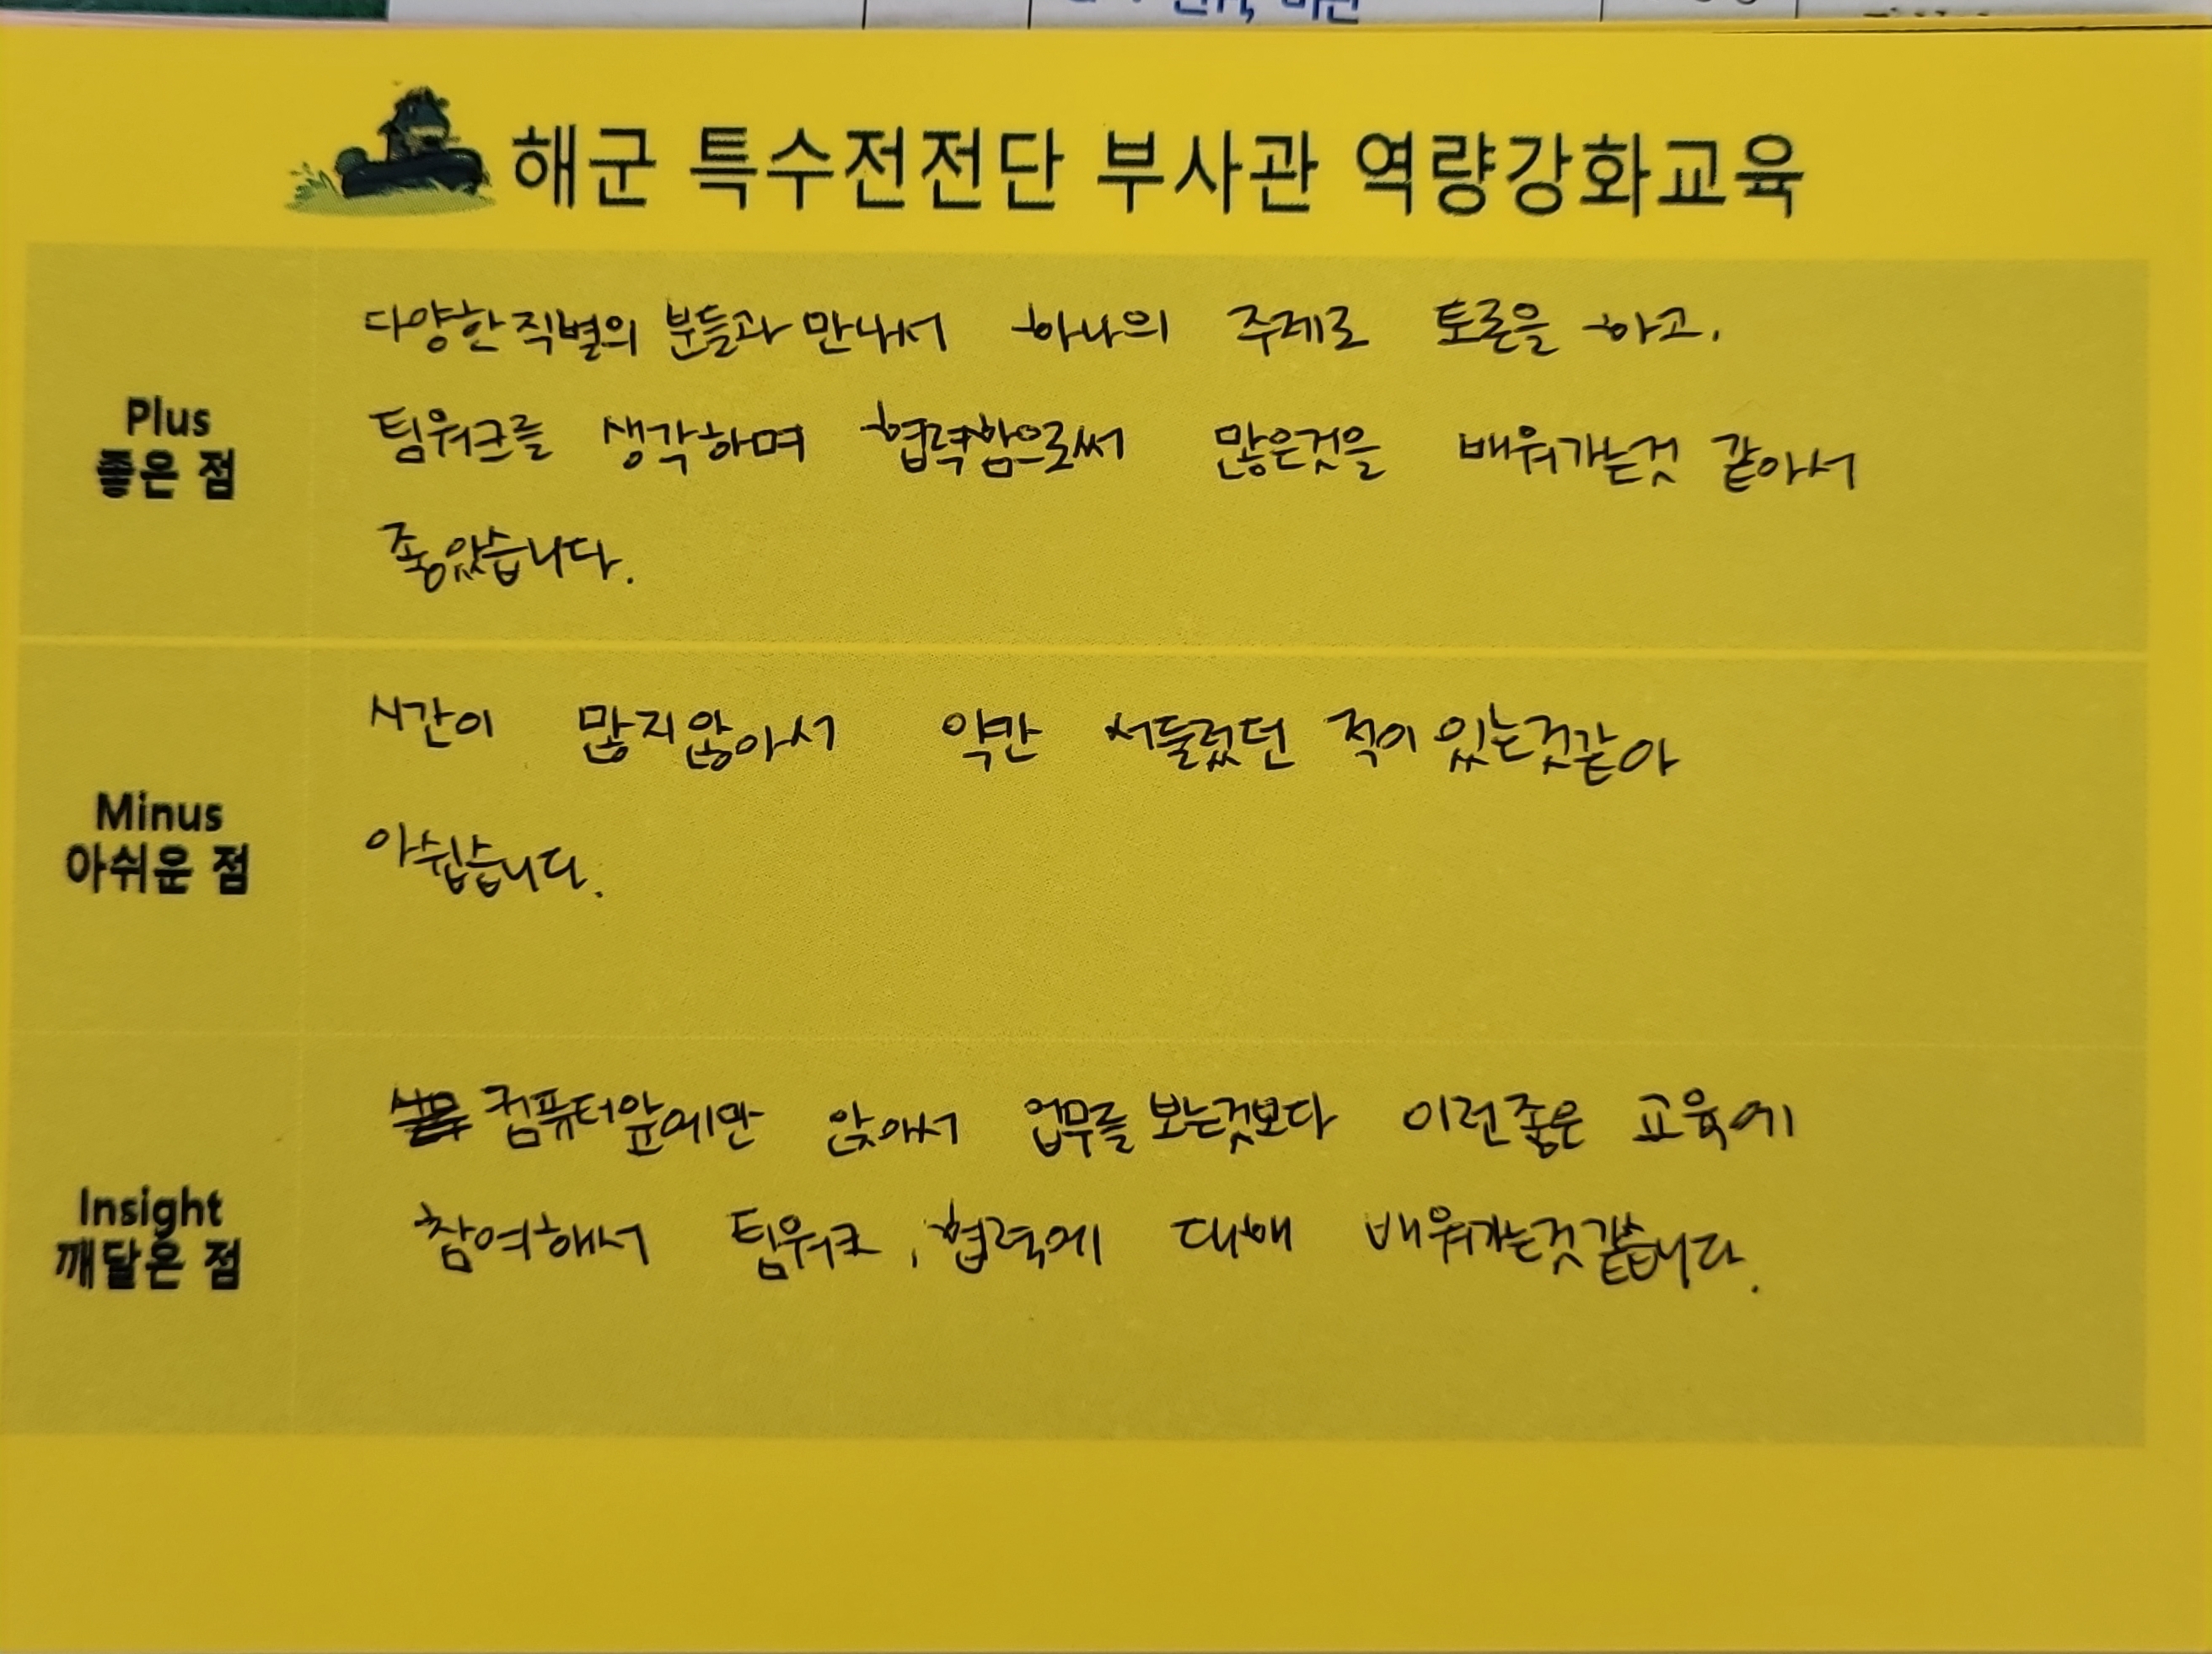 해군 특수전전단 부사관 역량강화교육
Plus
좋은 점
다양한 직별의 분들과 만나서 하나의 주제로 토론을 하고,
팀워크를 생각하며 협력함으로써 많은것을 배워가는것 같아서
좋았습니다.
Minus
아쉬운 점
시간이 많지않아서 약간 서둘렀던 적이 있는것같아
아쉽습니다.
Insight
깨달은 점
컴퓨터앞에만 앉아서 업무를 보는것보다 이런좋은 교육에
참여해서 팀워크, 협력에 대해 배워가는것 같습니다.